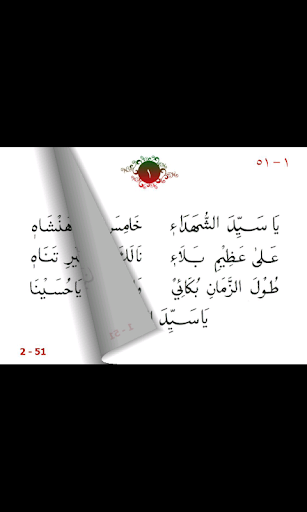 ١
٥١ - ١
يَا سَيِّدَ الشُّهَدَاءِ خَامِسَ
عَلىٰ عَظِيْمِ بَلَاءِ تَنَاهِ
طُوْلَ الزَّمَانِ بُكَائِيْ يَاحُسَيْنَا
يَاسَيِّدَ
2 - 51